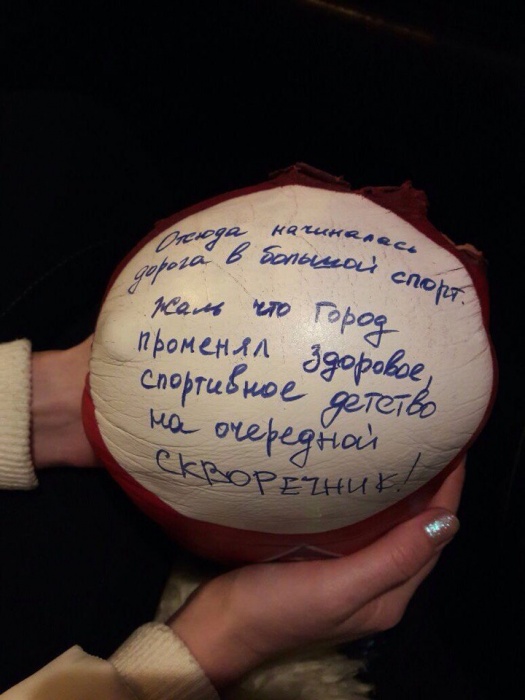 Отсюда начиналась
дорога в большой спорт.
Жаль что Город
променял Здоровое,
спортивное детство
на очередной
СКВОРЕЧНИК!